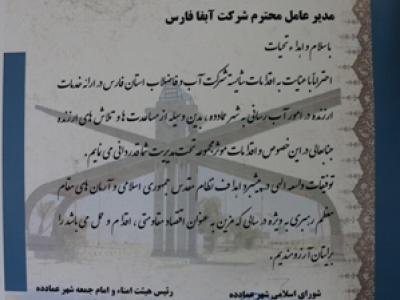 مدیر عامل محترم شرکت آبفا فارس
با سلام و اهداء تحیات
احتراماً با عنایت به اقدامات شایسته شرکت آب و فاضلاب استان فارس در ارائه خدمات
ارزنده در امور آب رسانی به شهر عمادده، بدین وسیله از مساعدت ها و تلاش های ارزنده
جنابعالی در این خصوص و اقدامات موثر مجموعه تحت مدیریت شما قدردانی می نمایم.
توفیقات واسعه الهی در پیشبرد اهداف نظام مقدس جمهوری اسلامی و آرمان های مقام
معظم رهبری به ویژه در سالی که مزین به عنوان اقتصاد مقاومتی، اقدام و عمل می باشد را
برایتان آرزومندیم.
رئیس هیئت امناء و امام جمعه شهر عمادده
شورای اسلامی شهر عمادده